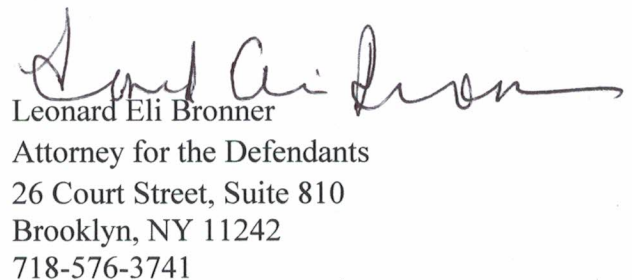 Leonard Eli Bronner
Attorney for the Defendants
26 Court Street, Suite 810
Brooklyn, NY 11242
718-576-3741